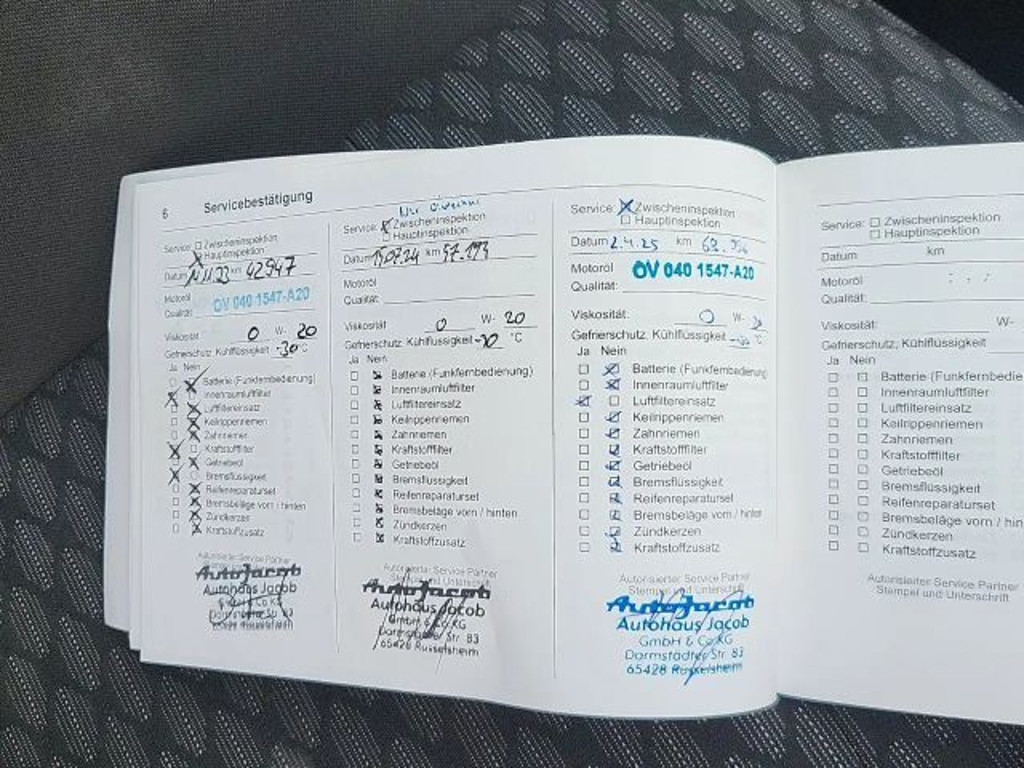 6 Servicebestätigung
Service: Zwischeninspektion
Hauptinspektion
Datum 14.11.23 km 42947
Motoröl
Qualität: OV 040 1547-A20
Viskosität 0 W- 20
Gefrierschutz, Kühlflüssigkeit -30 °C
Ja Nein
Batterie (Funkfernbedienung)
Innenraumluftfilter
Luftfiltereinsatz
Keilrippenriemen
Zahnriemen
Kraftstofffilter
Getriebeöl
Bremsflüssigkeit
Reifenreparaturset
Bremsbeläge vorn / hinten
Zündkerzen
Kraftstoffzusatz
Autorisierter Service Partner
AutoJacob
Autohaus Jacob
GmbH & Co KG
Darmstädter Str. 83
Service: Zwischeninspektion
Hauptinspektion
Datum 15.07.24 km 57.193
Motoröl
Qualität:
Viskosität 0 W- 20
Gefrierschutz, Kühlflüssigkeit °C
Ja Nein
Batterie (Funkfernbedienung)
Innenraumluftfilter
Luftfiltereinsatz
Keilrippenriemen
Zahnriemen
Kraftstofffilter
Getriebeöl
Bremsflüssigkeit
Reifenreparaturset
Bremsbeläge vorn / hinten
Zündkerzen
Kraftstoffzusatz
Autorisierter Service Partner
Stempel und Unterschrift
AutoJacob
Autohaus Jacob
GmbH & Co KG
Darmstädter Str. 83
65428 Rüsselsheim
Service: Zwischeninspektion
Hauptinspektion
Datum 2.4.25 km
Motoröl OV 040 1547-A20
Qualität:
Viskosität: 0 W-
Gefrierschutz, Kühlflüssigkeit °C
Ja Nein
Batterie (Funkfernbedienung)
Innenraumluftfilter
Luftfiltereinsatz
Keilrippenriemen
Zahnriemen
Kraftstofffilter
Getriebeöl
Bremsflüssigkeit
Reifenreparaturset
Bremsbeläge vorn / hinten
Zündkerzen
Kraftstoffzusatz
Autorisierter Service Partner
Stempel und Unterschrift
AutoJacob
Autohaus Jacob
GmbH & Co KG
Darmstädter Str. 83
65428 Rüsselsheim
Service: Zwischeninspektion
Hauptinspektion
Datum km
Motoröl
Qualität:
Viskosität: W-
Gefrierschutz, Kühlflüssigkeit
Ja Nein
Batterie (Funkfernbedie
Innenraumluftfilter
Luftfiltereinsatz
Keilrippenriemen
Zahnriemen
Kraftstofffilter
Getriebeöl
Bremsflüssigkeit
Reifenreparaturset
Bremsbeläge vorn / hin
Zündkerzen
Kraftstoffzusatz
Autorisierter Service Partner
Stempel und Unterschrift